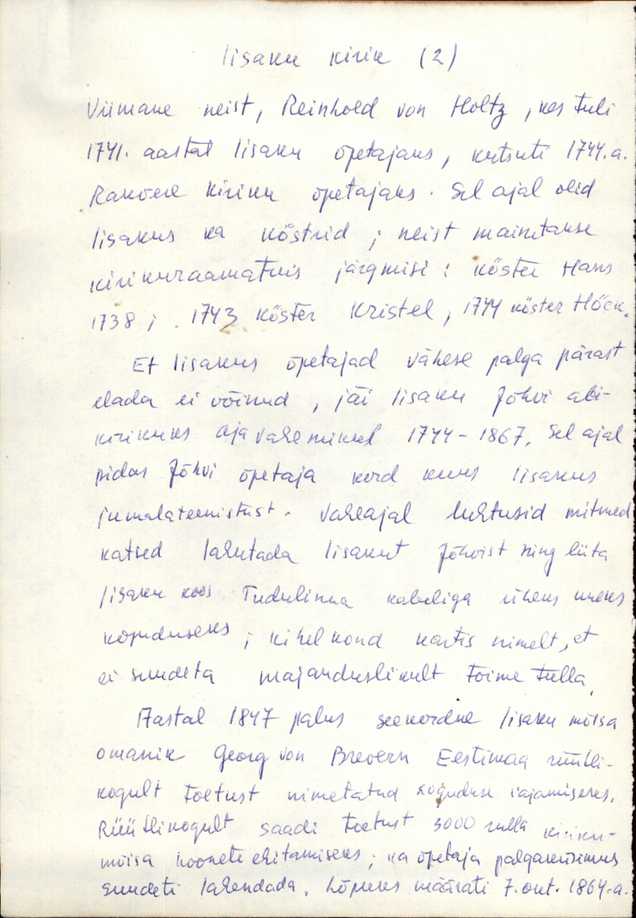 Iisaku kirik (2)
Viimane neist, Reinhold von Holtz, kes tuli
1741. aastal Iisaku õpetajaks, kutsuti 1744.a.
Rakvere kiriku õpetajaks. Sel ajal olid
Iisakus ka köstrid; neist mainitakse
kirikuraamatuis järgmisi: köster Hans
1738; 1743 köster Kristel, 1744 köster Höck.
Et Iisakus õpetajad vähese palga pärast
elada ei võinud, jäi Iisaku Jõhvi abi-
kirikuks ajavahemikul 1744-1867. Sel ajal
pidas Jõhvi õpetaja kord kuus Iisakus
jumalateenistust. Vaheajal luhtusid mitmed
katsed lahutada Iisakut Jõhvist ning liita
Iisaku koos Tudulinna kabeliga üheks uueks
koguduseks; kihelkond kartis nimelt, et
ei suudeta majanduslikult toime tulla.
Aastal 1847 palus seekordne Iisaku mõisa
omanik Georg von Brevern Eestimaa rüütli-
kogult toetust nimetatud koguduse rajamiseks.
Rüütlikogult saadi toetust 3000 rubla kiriku-
mõisa hoonete ehitamiseks; ka õpetaja palgaküsimus
suudeti lahendada. Lõpuks määrati 7. okt. 1864.a.